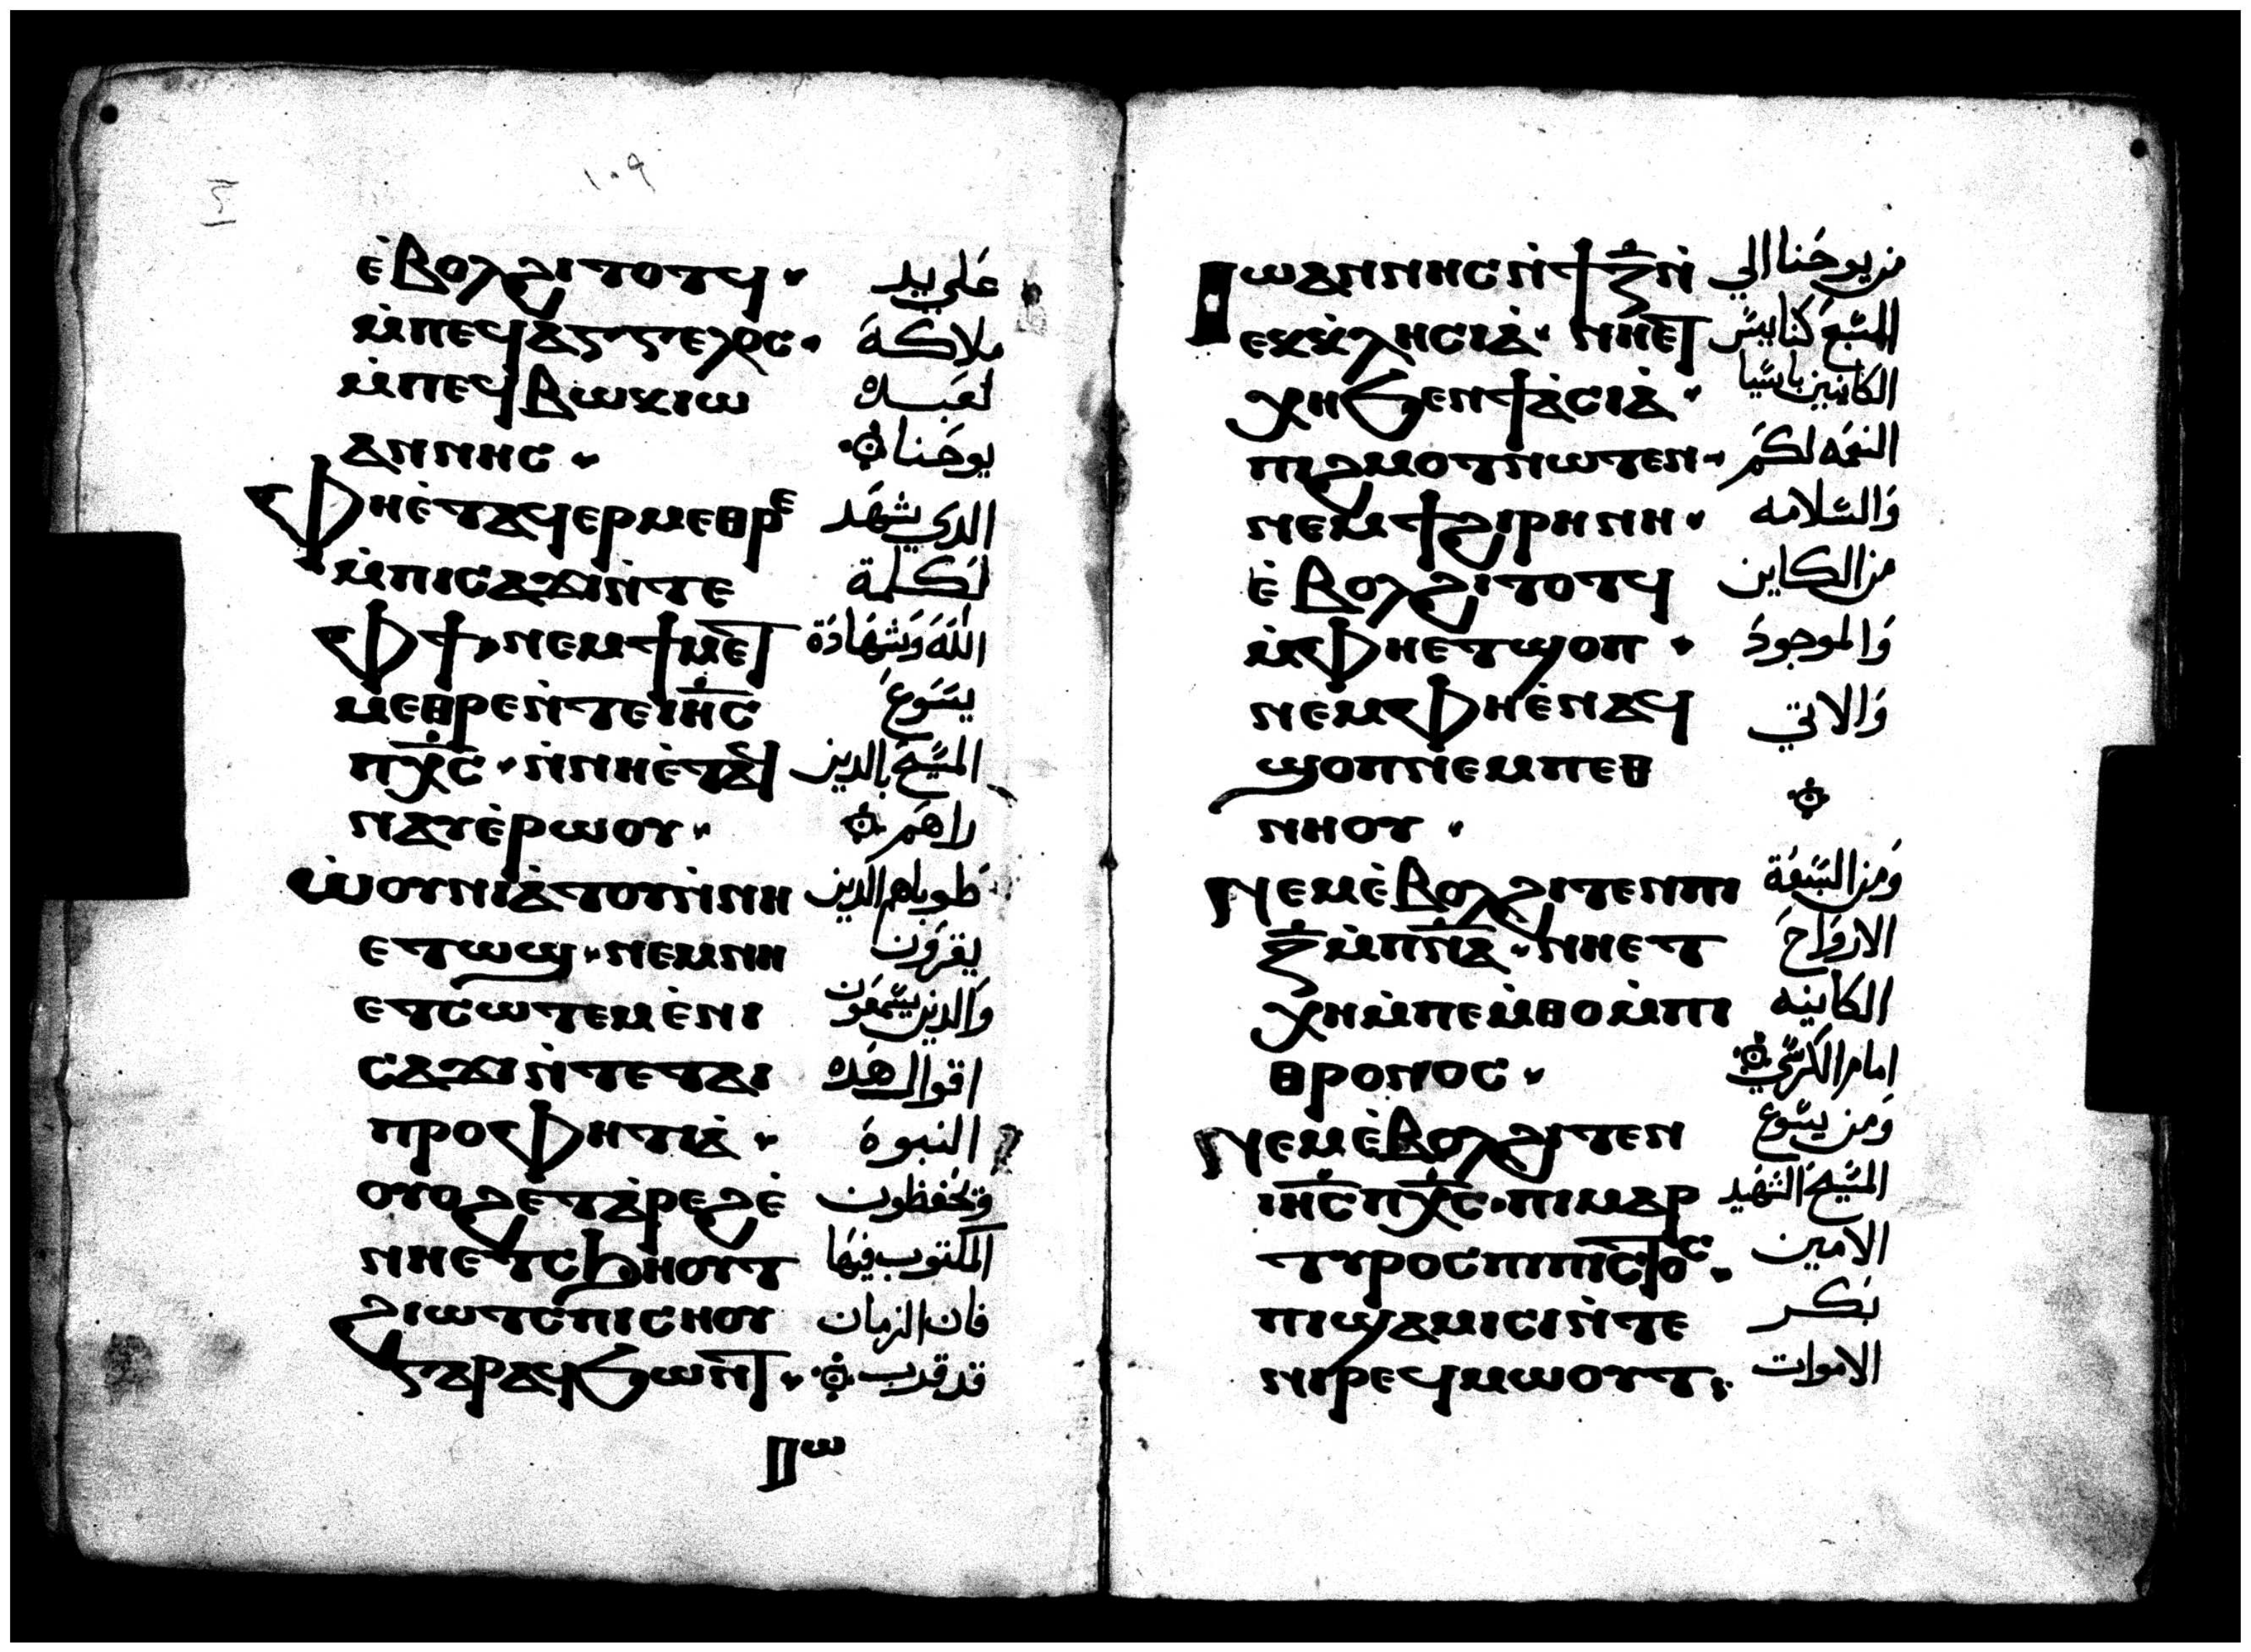 ١٠٩
ⲉ̀ⲃⲟⲗϩⲓⲧⲟⲧϥ· علي يد
ⲙ̀ⲡⲉϥⲁⲅⲅⲉⲗⲟⲥ· ملاكة
ⲙ̀ⲡⲉϥⲃⲱⲕⲓⲱ لعبده
ⲁⲛⲛⲏⲥ· يوحنا
ⲫⲏⲉ̀ⲧⲁϥⲉⲣⲙⲉⲑⲣⲉ الدي شهد
ⲙ̀ⲡⲓⲥⲁϫⲓⲛ̀ⲧⲉ لكلمة
ⲫϯ·ⲛⲉⲙϯⲙⲉⲧ اللـه وشهادة
ⲙⲉⲑⲣⲉⲛ̀ⲧⲉⲓⲏ̅ⲥ̅ يسوع
ⲡⲭ̅ⲥ̅·ⲛ̀ⲛⲏⲉ̀ⲧⲁϥ المسيح بالدين
ⲛⲁⲩⲉ̀ⲣⲱⲟⲩ· راهم
ⲱ̀ⲟⲩⲛⲓⲁ̀ⲧⲟⲩⲛ̀ⲛⲏ طوباهم الدين
ⲉⲧⲱϣ·ⲛⲉⲙⲛⲏ يقرون
ⲉⲧⲥⲱⲧⲉⲙⲉ̀ⲛⲓ والدين يسمعون
ⲥⲁϫⲓⲛ̀ⲧⲉⲧⲁⲓ اقوال هده
ⲡⲣⲟⲫⲏⲧⲓⲁ̀· النبوة
ⲟⲩⲟϩⲉⲧⲁ̀ⲣⲉϩⲉ̀ وتحفظون
ⲛⲏⲉⲧⲥϧⲏⲟⲩⲧ المكتوب فيها
ϩⲓⲱⲧⲥⲡⲓⲥⲏⲟⲩ فان الزمان
ⲅⲁⲣⲁϥϭⲱⲛⲧ· قد قرب
ⲓⲱⲁⲛⲛⲏⲥⲛ̀ϯⲍ̅ⲛ̀ من يوحنا الي
ⲉⲕⲕⲗⲏⲥⲓⲁ̀·ⲛⲏⲉⲧ المسبع كنايس
ⲭⲏϧⲉⲛϯⲁ̀ⲥⲓⲁ̀· الكاينين باسيا
ⲡⲓϩⲙⲟⲧⲛⲱⲧⲉⲛ· النعمه لكم
ⲛⲉⲙϯϩⲓⲣⲏⲛⲏ· والسلامه
ⲉ̀ⲃⲟⲗϩⲓⲧⲟⲧϥ من الكاين
ⲙ̀ⲫⲏⲉⲧϣⲟⲡ· والموجود
ⲛⲉⲙⲫⲏⲉ̀ⲛⲁϥ والاتي
ϣⲟⲡⲛⲉⲙⲡⲉⲑ
ⲛⲏⲟⲩ·
ⲛⲉⲙⲉ̀ⲃⲟⲗϩⲓⲧⲉⲛⲡⲓ ومن السبعة
ⲍ̅ⲙ̀ⲡⲛ̅ⲁ̅·ⲛⲏⲉⲧ الارواح
ⲭⲏⲙ̀ⲡⲉⲙ̀ⲑⲟⲙ̀ⲡⲓ الكاينه
ⲑⲣⲟⲛⲟⲥ· امام الكرسي
ⲛⲉⲙⲉ̀ⲃⲟⲗϩⲓⲧⲉⲛ ومن يسوع
ⲓⲏ̅ⲥ̅ⲡⲭ̅ⲥ̅·ⲡⲓⲙⲁⲣ المسيح الشهيد
ⲧⲩⲣⲟⲥⲡⲓⲡⲓⲥⲧⲟⲥ· الامين
ⲡⲓϣⲁⲙⲓⲥⲓⲛ̀ⲧⲉ بكر
ⲛⲓⲣⲉϥⲙⲱⲟⲩⲧ· الاموات